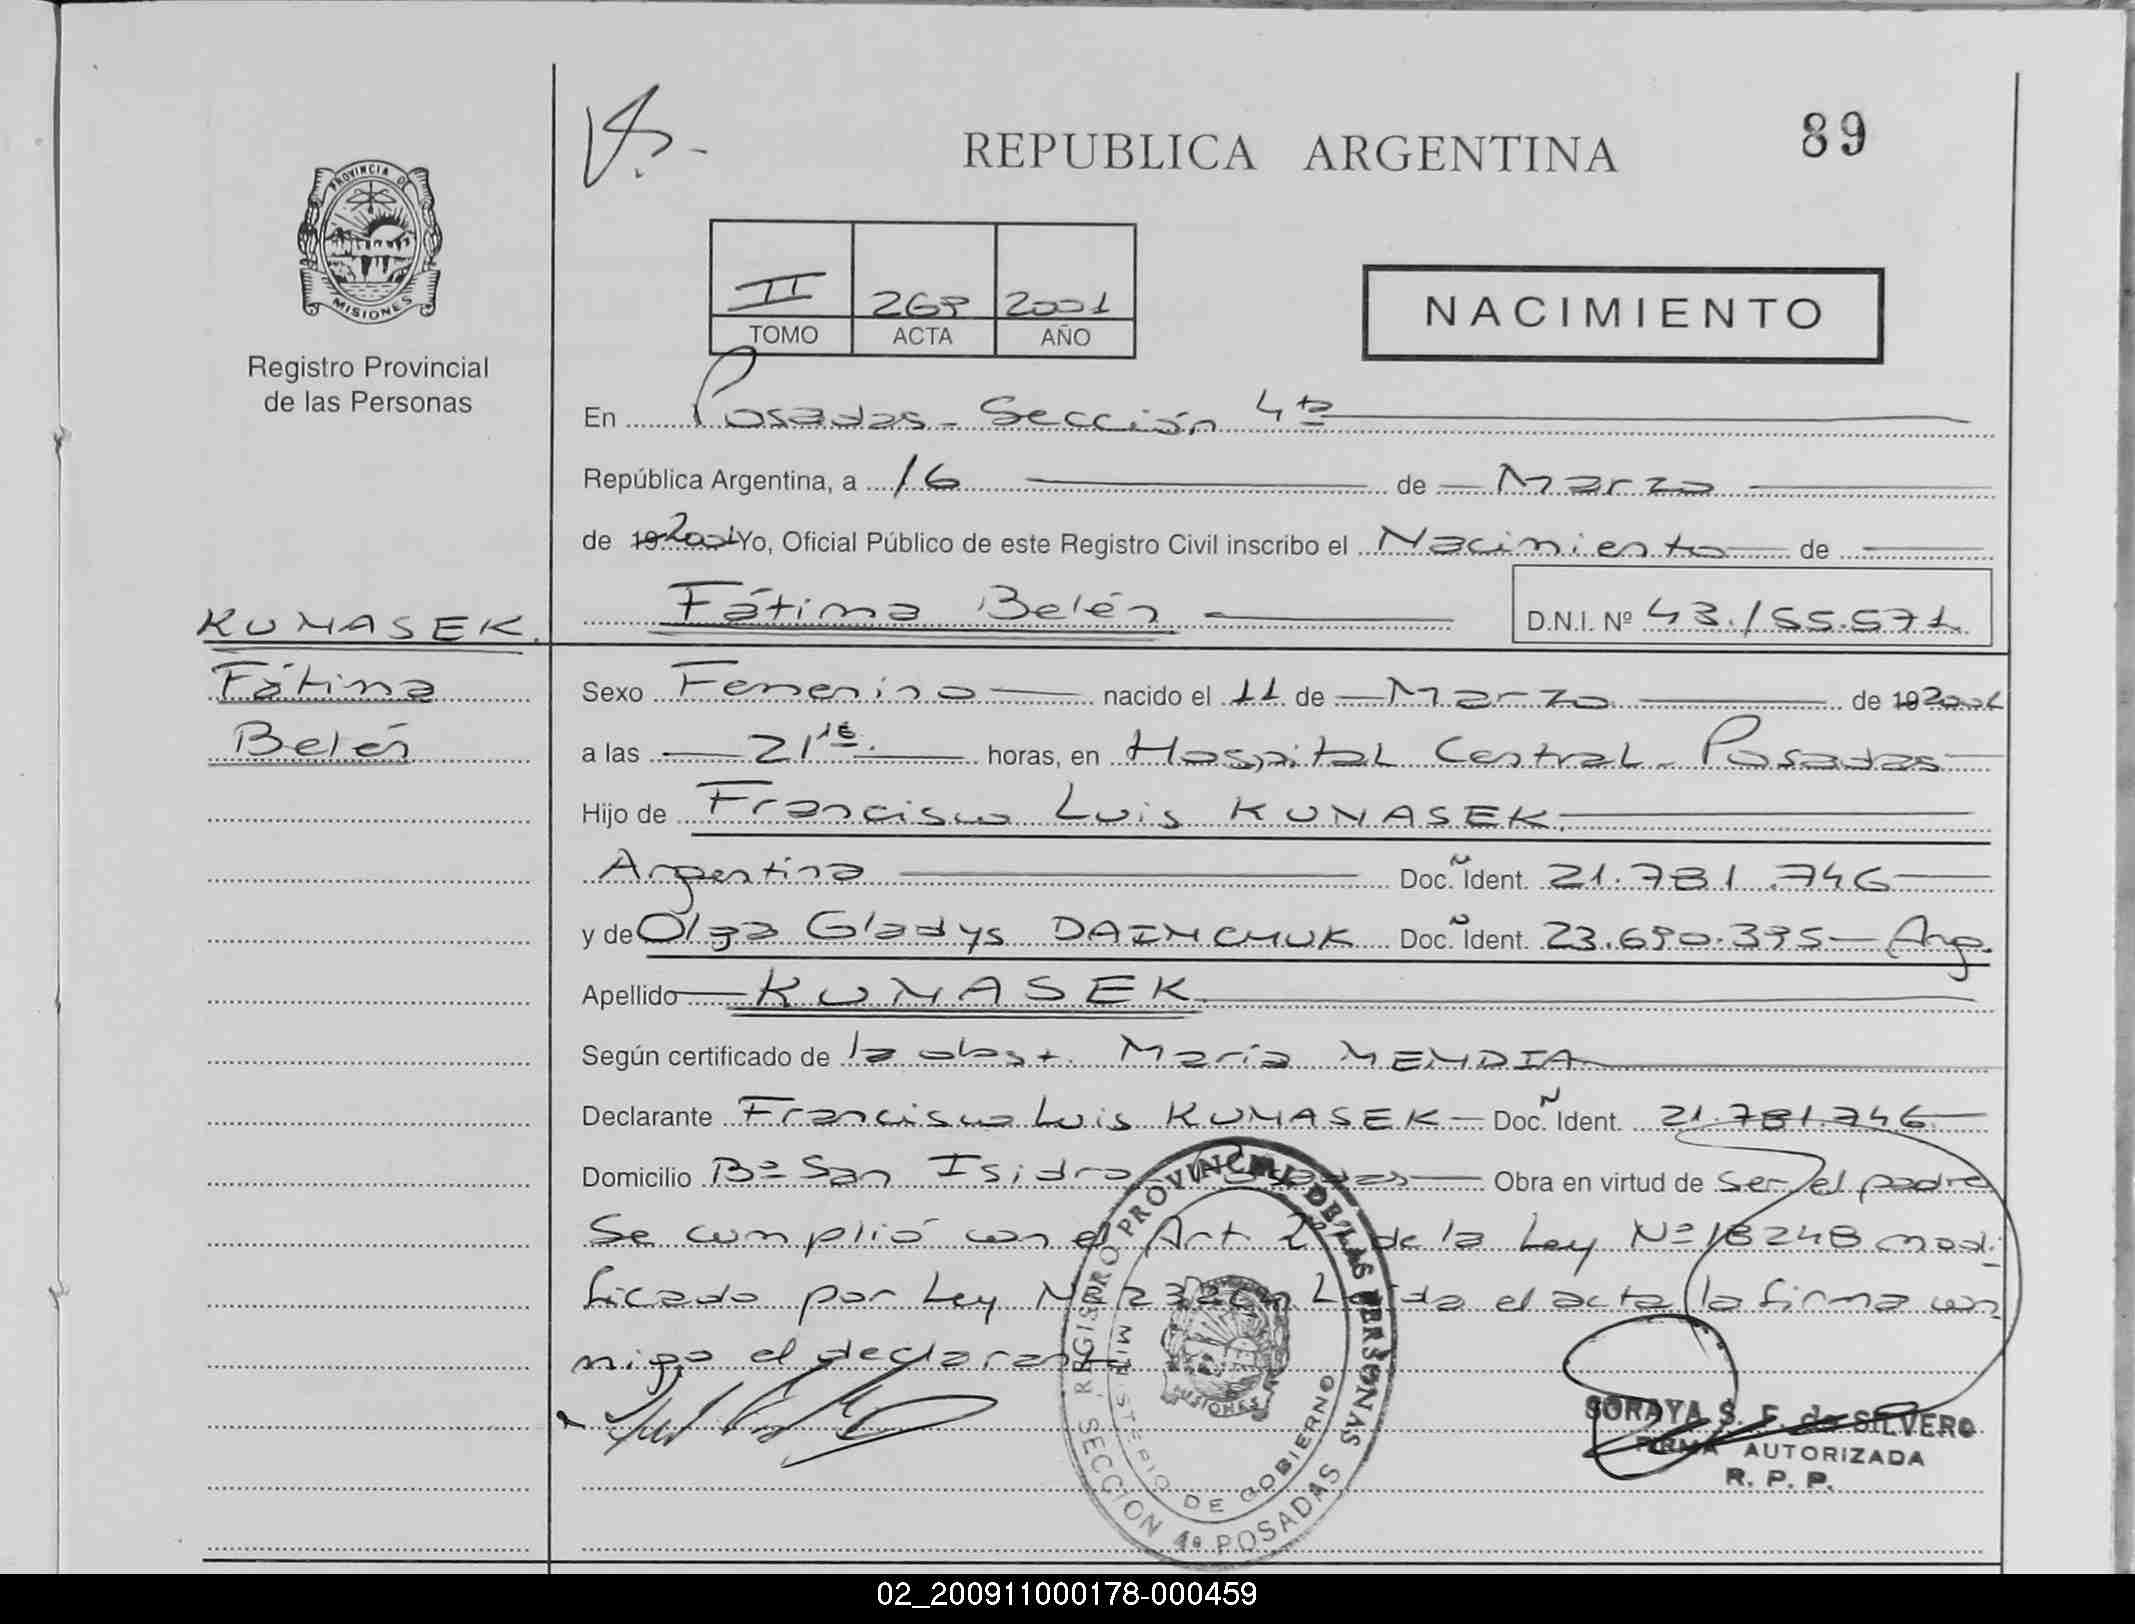 PROVINCIA DE
MISIONES
Registro Provincial
de las Personas
REPUBLICA ARGENTINA
89
II 2001
TOMO ACTA AÑO
NACIMIENTO
En Posadas - Sección 4ta
República Argentina, a 16 de Marzo
de 19 2001 Yo, Oficial Público de este Registro Civil inscribo el Nacimiento de
Fátima Belén D.N.I. Nº 43.155.571
KUNASEK
Fátima
Belén
Sexo Femenino nacido el 11 de Marzo de 19 2001
a las 21 15 horas, en Hospital Central - Posadas
Hijo de Francisco Luis KUNASEK
Argentina Doc. Ident. 21.781.746
y de Olga Gladys Doc. Ident. Arg.
Apellido KUNASEK
Según certificado de la obst. María MENDIA
Declarante Francisco Luis KUNASEK Doc. Ident. 21.781.746
Domicilio Bº San Isidro Posadas Obra en virtud de ser el padre
Se cumplió con el Art 2º de la Ley Nº 18248 modi
ficado por Ley Nº Leída el acta la firma con
migo el declarante
REGISTRO PROVINCIAL DE LAS PERSONAS
MINISTERIO DE GOBIERNO
MISIONES
SECCION 4a POSADAS
SORAYA S. F. de SILVERO
FIRMA AUTORIZADA
R. P. P.
02_200911000178-000459